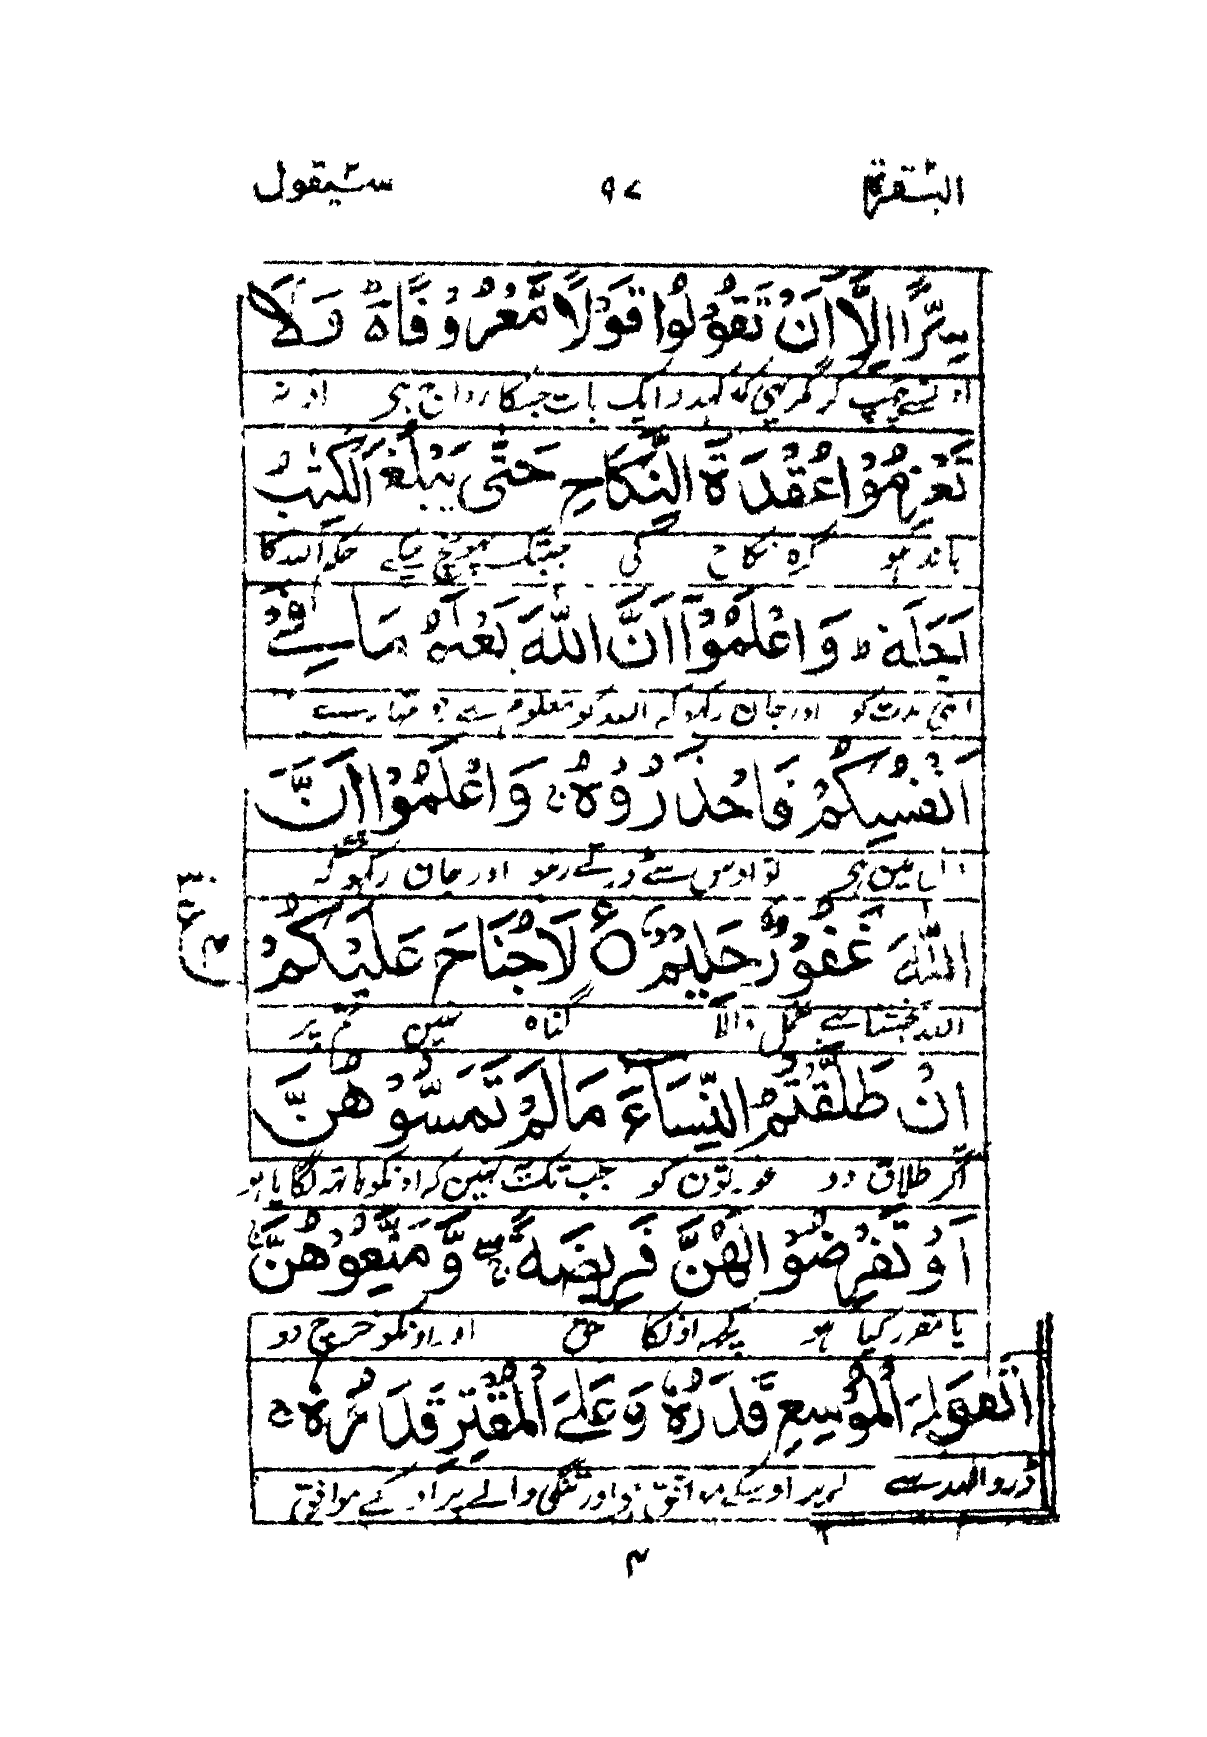 البقرة ٩٧ سيقول
سِرًّا اِلَّآ اَنْ تَقُوْلُوْا قَوْلًا مَّعْرُوْفًا ۵ؕ وَلَا
چھپ کر مگر یہی کہ کہدو ایک بات جسکا رواج ہی اور نہ
تَعْزِمُوْا عُقْدَةَ النِّكَاحِ حَتّٰى يَبْلُغَ الْكِتٰبُ
باندھو گرہ نکاح کی جبتک پہونچ چکے حکم اللہ کا
اَجَلَهٗ ؕ وَاعْلَمُوْٓا اَنَّ اللّٰهَ يَعْلَمُ مَا فِيْٓ
اپنی مدت کو اور جان رکہو کہ اللہ کو معلوم ہے جو تمہارے
اَنْفُسِكُمْ فَاحْذَرُوْهُ ۚ وَاعْلَمُوْٓا اَنَّ
دل مین ہی تو اوس سے ڈرتے رہو اور جان رکہو کہ
اللّٰهَ غَفُوْرٌ حَلِيْمٌ ۝ ع لَا جُنَاحَ عَلَيْكُمْ
اللہ بخشتا ہے تحمل والا گناہ نہین تم پر
اِنْ طَلَّقْتُمُ النِّسَآءَ مَا لَمْ تَمَسُّوْهُنَّ
اگر طلاق دو عورتون کو جب تک نہین کہ اونکو ہاتہ لگایا ہو
اَوْ تَفْرِضُوْا لَهُنَّ فَرِيْضَةً ۖۚ وَّمَتِّعُوْهُنَّ ۚ
یا مقرر کیا ہو کچہہ اونکا حق اور اونکو خرچ دو
الْمُوْسِعِ قَدَرُهٗ وَعَلَى الْمُقْتِرِ قَدَرُهٗ ۚ
ڈرو اللہ سے پر اوسکے موافق اور تنگی والے پر اوسکے موافق